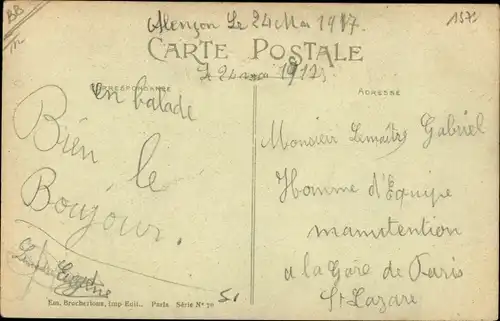 BB
Alençon Le 24 Mai 1917.
1572
CARTE POSTALE
CORRESPONDANCE
ADRESSE
en balade
Bien le
Boujour.
Monsieur Lemaître Gabriel
Homme d'Equipe
manutention
a la Gare de Paris
St Lazare
Em. Brocherioux, Imp-Edit., Paris Série N° 70
51